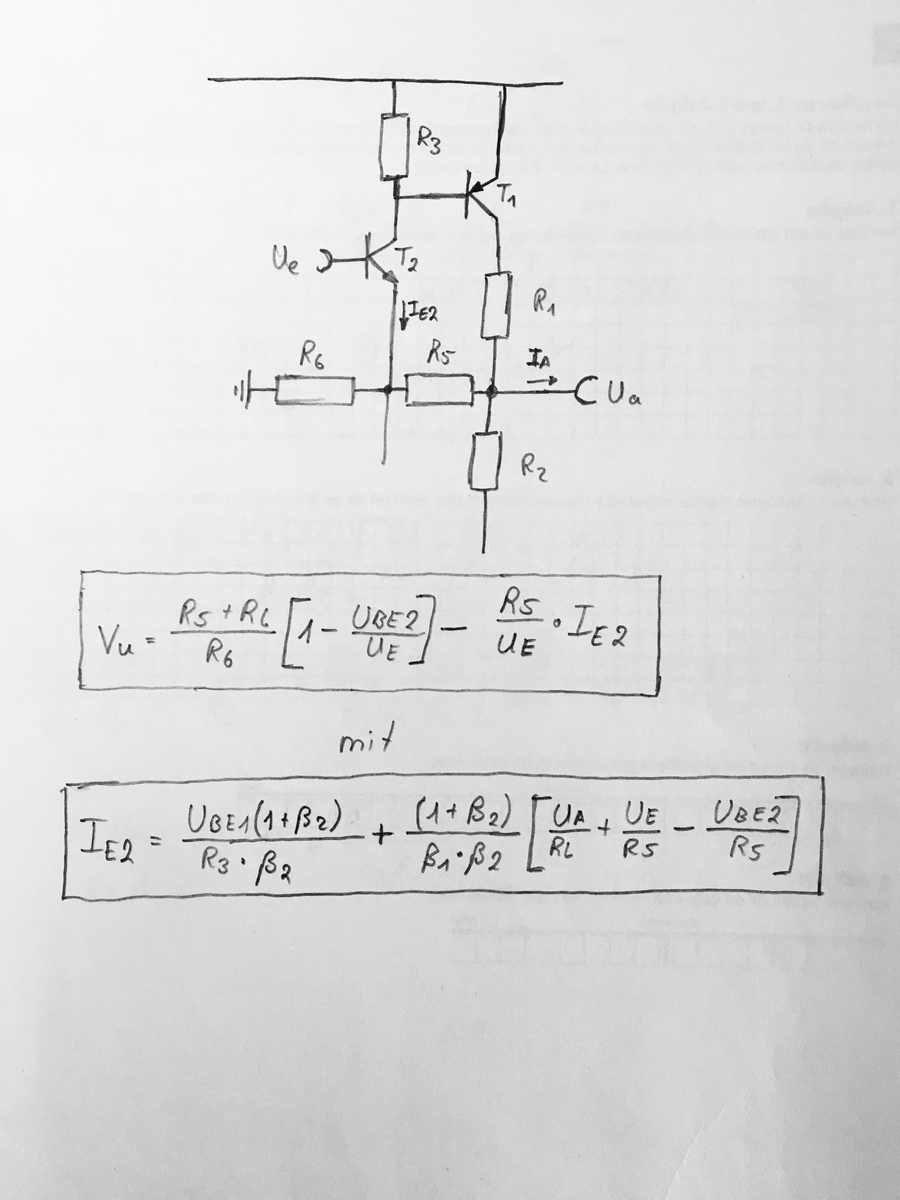 R3
T1
Ue
T2
IE2
R1
R6
R5
IA
Ua
R2
Vu = (R5 + R6)/R6 [1 - UBE2/UE] - R5/UE · IE2
mit
IE2 = UBE1(1+β2)/(R3 · β2) + (1+β2)/(β1 · β2) [UA/RL + UE/R5 - UBE2/R5]